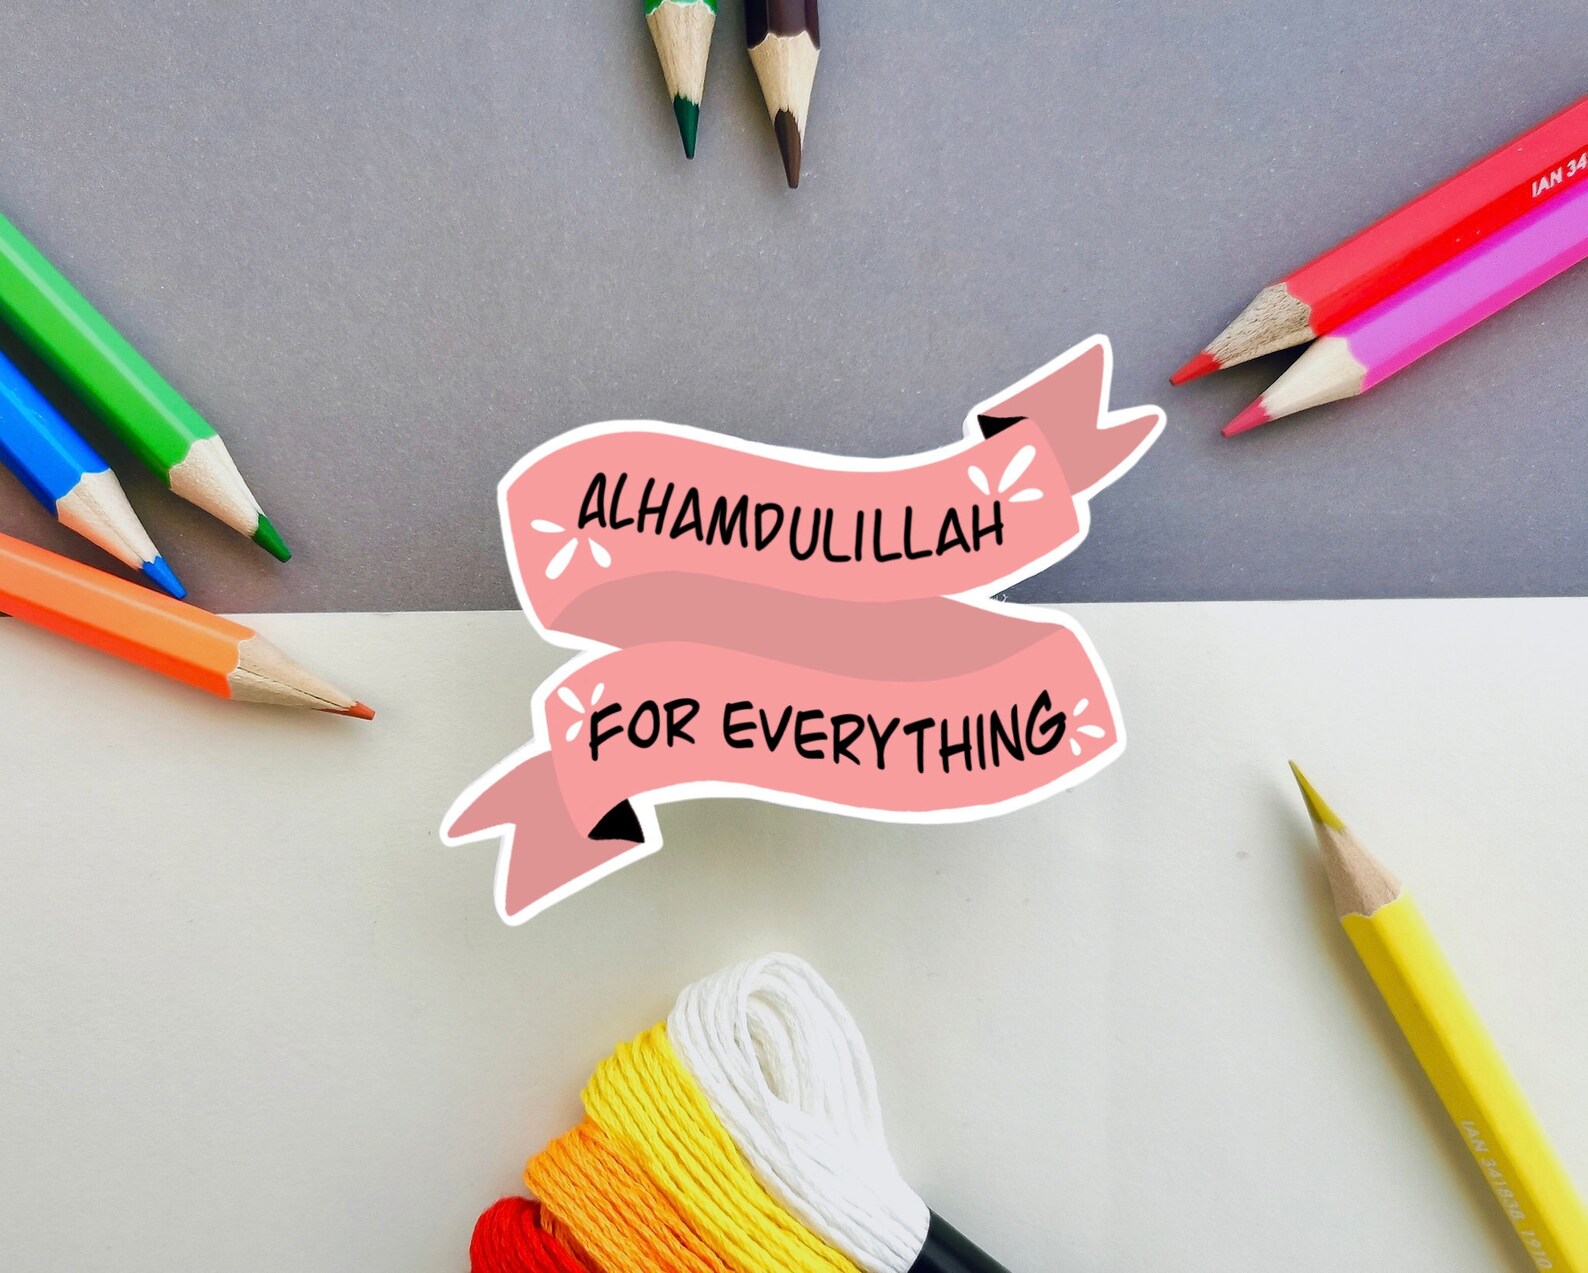 ALHAMDULILLAH
FOR EVERYTHING
IAN 34
IAN 341838_1910